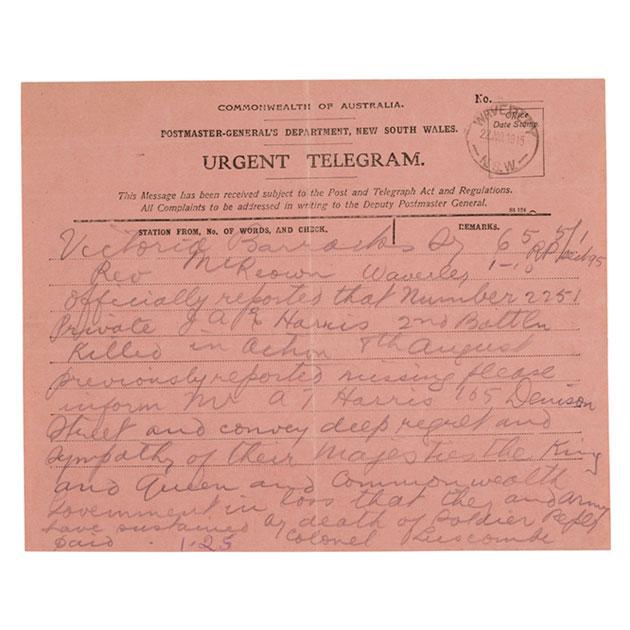 COMMONWEALTH OF AUSTRALIA.
No.
POSTMASTER-GENERAL'S DEPARTMENT, NEW SOUTH WALES.
Office Date Stamp
WAVERLEY
1915
N.S.W.
URGENT TELEGRAM.
This Message has been received subject to the Post and Telegraph Act and Regulations.
All Complaints to be addressed in writing to the Deputy Postmaster General.
STATION FROM, No. OF WORDS, AND CHECK.
REMARKS.
Victoria Barracks Sy 65 5/1
Rev McKeown Waverley 1-10
Officially reported that Number 2251
Private J A E Harris 2nd Battln
Killed in Action 8th August
previously reported missing please
inform Mr A T Harris 105 Denison
Street and convey deep regret and
sympathy of their Majesties the King
and Queen and Commonwealth
Government in loss that they and Army
have sustained by death of Soldier Reply
paid 1.25 Colonel Luscombe